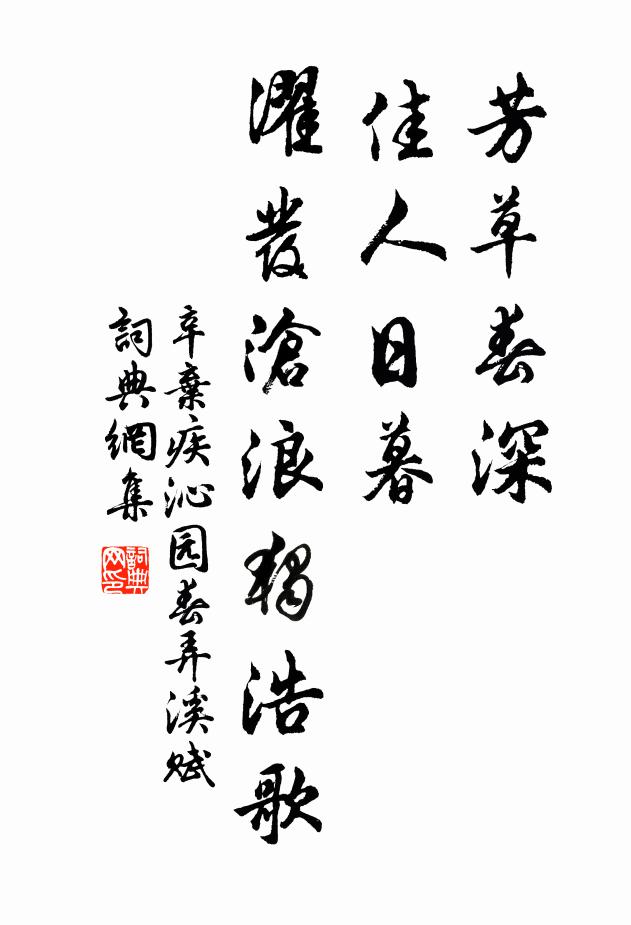 芳草春深
佳人日暮
濯發滄浪獨浩歌
辛棄疾沁园春弄溪赋
詞典網集
詞典网印